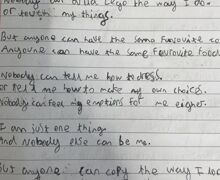 Nobody can build Lego the way I do.
or touch my things.
But anyone can have the same favourite co
Anyone can have the same favourite food
Nobody can tell me how to dress.
or tell me how to make my own choice.
Nobody can feel my emotions for me eigher.
I am just one thing.
And nobody else can be me.
But anyone can copy the way I loo